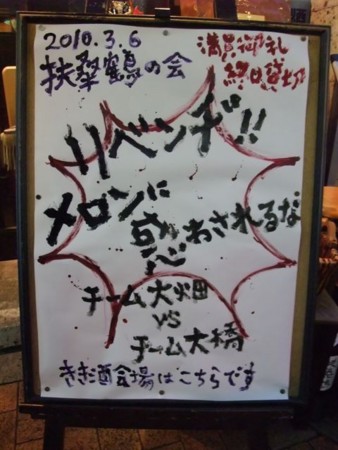 2010.3.6
扶桑鶴の会
満員御礼
終日貸切
リベンヂ!!
メロンに
惑わされるな
チーム大畑
VS
チーム大橋
きき酒会場はこちらです